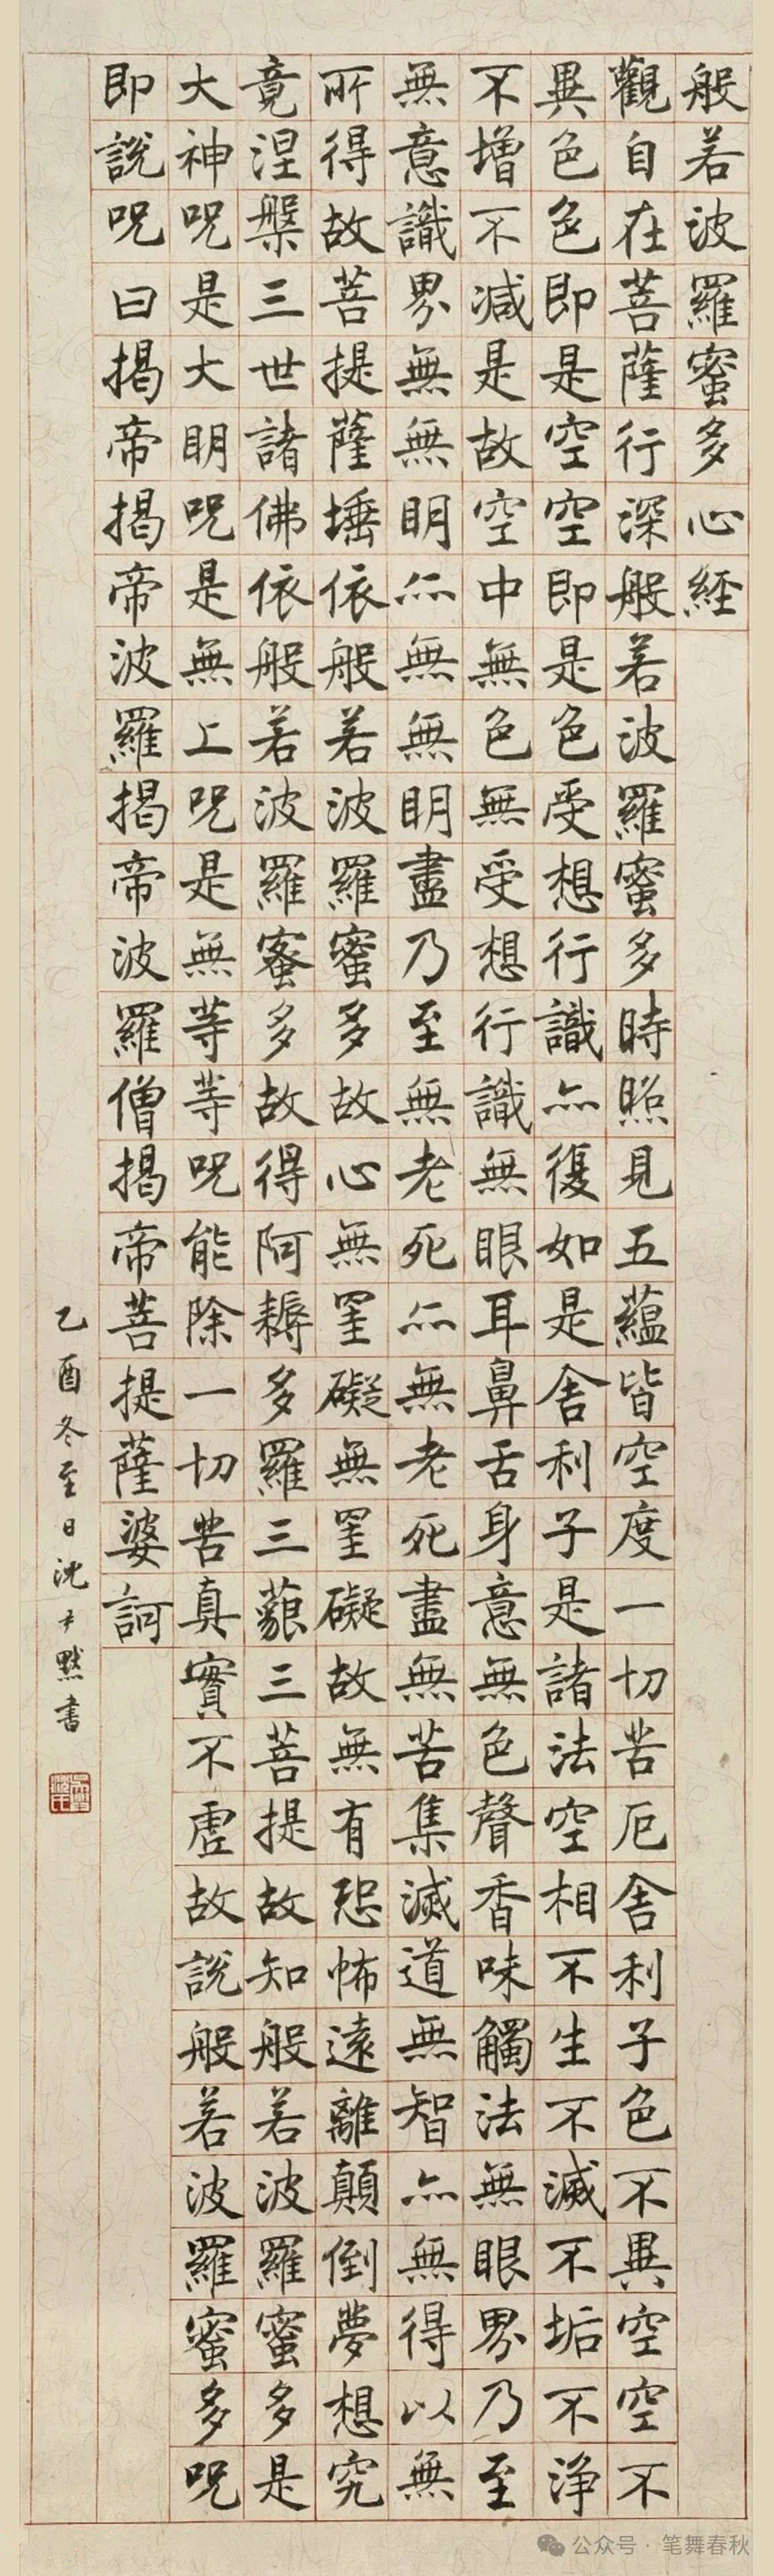 般若波羅蜜多心經
觀自在菩薩行深般若波羅蜜多時照見五蘊皆空度一切苦厄舍利子色不異空空不
異色色即是空空即是色受想行識亦復如是舍利子是諸法空相不生不滅不垢不淨
不增不減是故空中無色無受想行識無眼耳鼻舌身意無色聲香味觸法無眼界乃至
無意識界無無明亦無無明盡乃至無老死亦無老死盡無苦集滅道無智亦無得以無
所得故菩提薩埵依般若波羅蜜多故心無罣礙無罣礙故無有恐怖遠離顛倒夢想究
竟涅槃三世諸佛依般若波羅蜜多故得阿耨多羅三藐三菩提故知般若波羅蜜多是
大神呪是大明呪是無上呪是無等等呪能除一切苦真實不虛故說般若波羅蜜多呪
即說呪曰揭帝揭帝波羅揭帝波羅僧揭帝菩提薩婆訶
乙酉冬至日沈尹默書
公众号·笔舞春秋